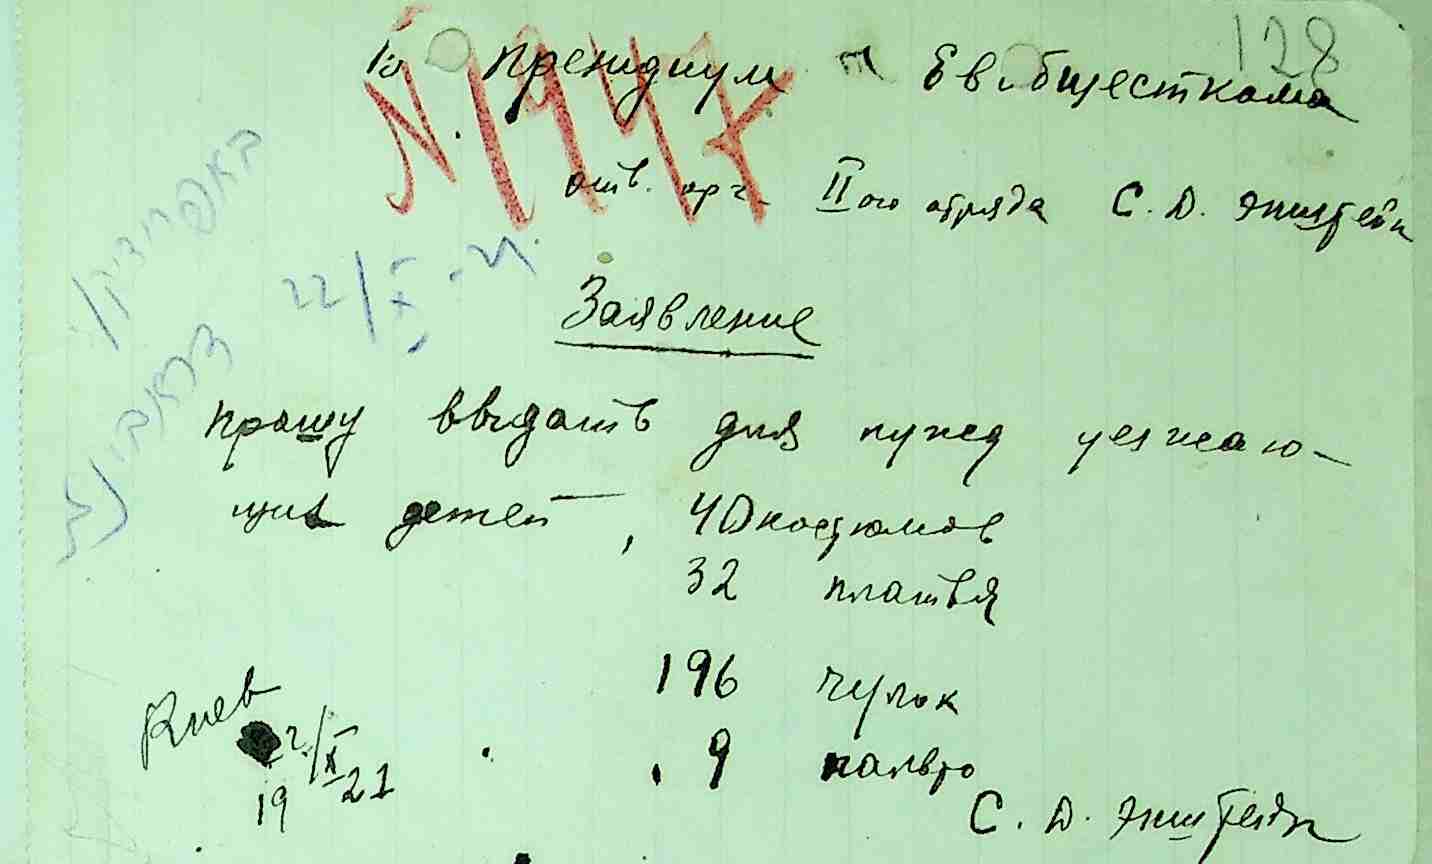 128
В Президиум Евобщесткома
N. 1947
отв. орг. IIого отряда С. Д. Эпштейн
באפרידיקן
22/X - 21.
Заявление
прошу выдать для нужд уезжаю-
щих детей, 40 костюмов
32 платья
196 чулок
9 пальто
Киев
22/X
19 21
С. Д. Эпштейн